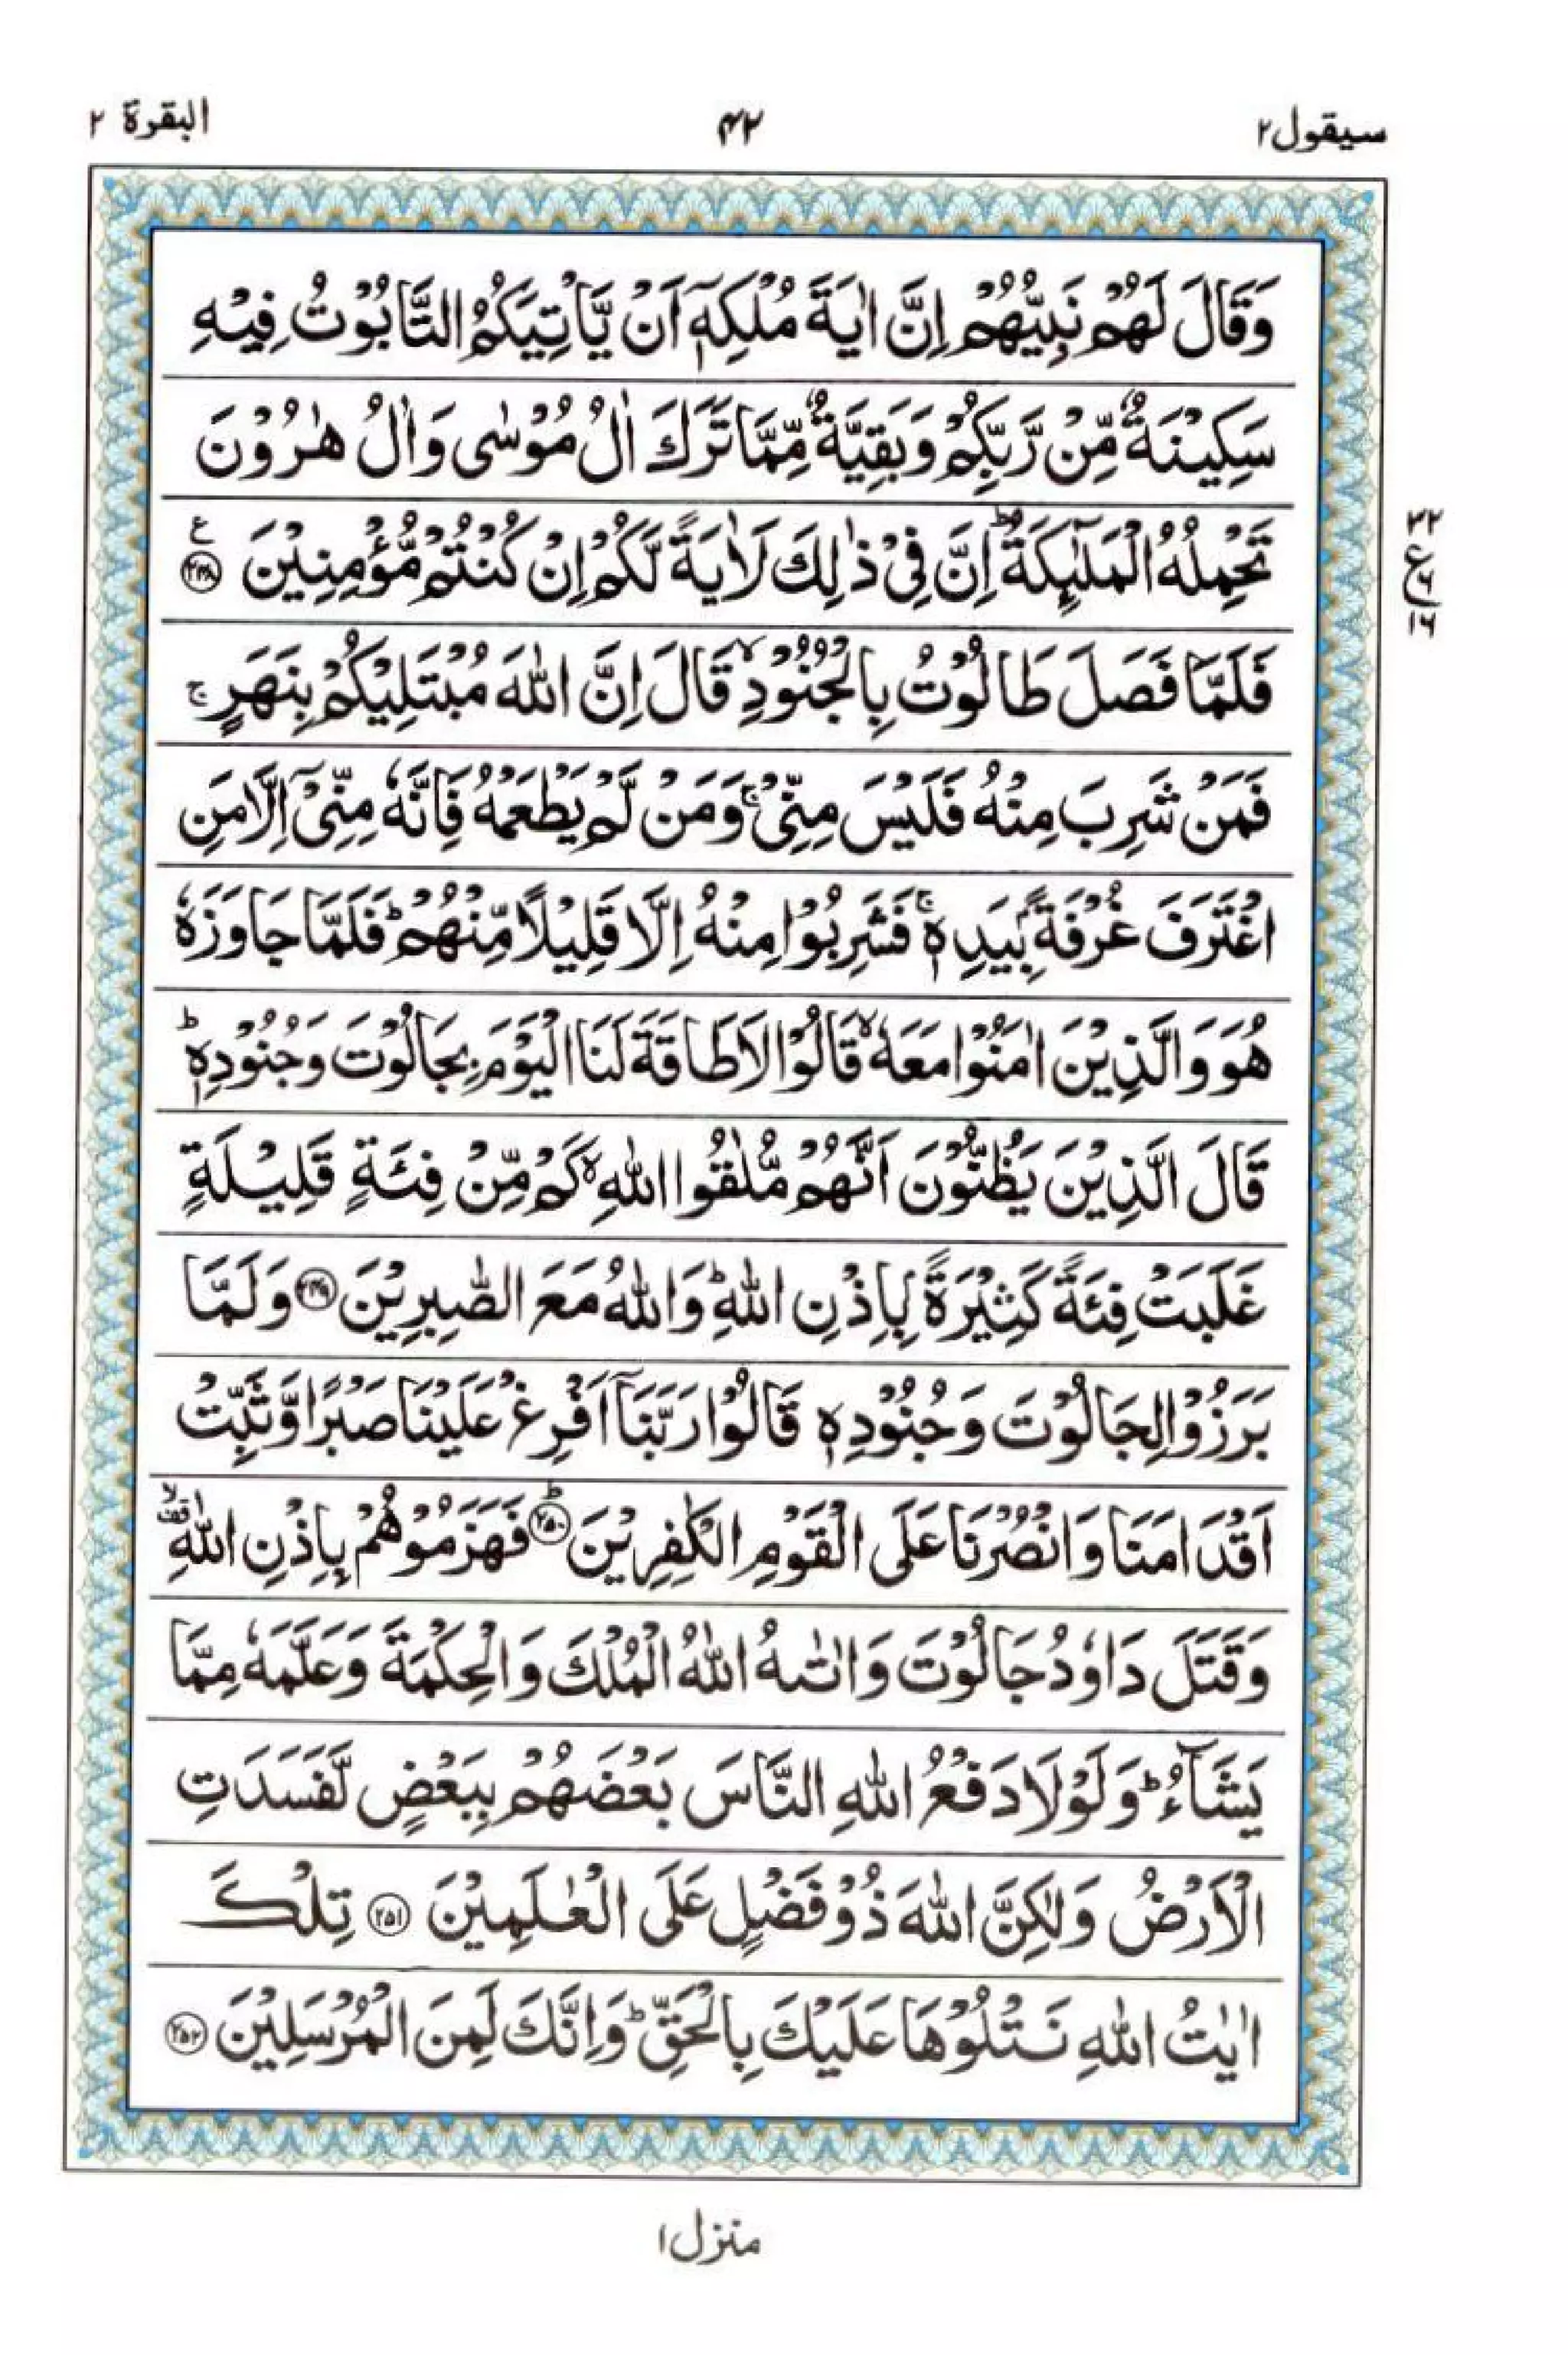 سيقول٢ ٤٢ البقرة ٢
وَقَالَ لَهُمْ نَبِيُّهُمْ اِنَّ اٰيَةَ مُلْكِهٖٓ اَنْ يَّاْتِيَكُمُ التَّابُوْتُ فِيْهِ
سَكِيْنَةٌ مِّنْ رَّبِّكُمْ وَبَقِيَّةٌ مِّمَّا تَرَكَ اٰلُ مُوْسٰى وَاٰلُ هٰرُوْنَ
تَحْمِلُهُ الْمَلٰٓئِكَةُ ؕ اِنَّ فِيْ ذٰلِكَ لَاٰيَةً لَّكُمْ اِنْ كُنْتُمْ مُّؤْمِنِيْنَ ﴿۲۴۸﴾ ع
۳۲
ع ۶
۱۶
فَلَمَّا فَصَلَ طَالُوْتُ بِالْجُنُوْدِ ۙ قَالَ اِنَّ اللّٰهَ مُبْتَلِيْكُمْ بِنَهَرٍ ۚ
فَمَنْ شَرِبَ مِنْهُ فَلَيْسَ مِنِّيْ ۚ وَمَنْ لَّمْ يَطْعَمْهُ فَاِنَّهٗ مِنِّيْٓ اِلَّا مَنِ
اغْتَرَفَ غُرْفَةًۢ بِيَدِهٖ ۚ فَشَرِبُوْا مِنْهُ اِلَّا قَلِيْلًا مِّنْهُمْ ؕ فَلَمَّا جَاوَزَهٗ
هُوَ وَالَّذِيْنَ اٰمَنُوْا مَعَهٗ ۙ قَالُوْا لَا طَاقَةَ لَنَا الْيَوْمَ بِجَالُوْتَ وَجُنُوْدِهٖ ؕ
قَالَ الَّذِيْنَ يَظُنُّوْنَ اَنَّهُمْ مُّلٰقُوا اللّٰهِ ۙ كَمْ مِّنْ فِئَةٍ قَلِيْلَةٍ
غَلَبَتْ فِئَةً كَثِيْرَةًۢ بِاِذْنِ اللّٰهِ ؕ وَاللّٰهُ مَعَ الصّٰبِرِيْنَ ﴿۲۴۹﴾ وَلَمَّا
بَرَزُوْا لِجَالُوْتَ وَجُنُوْدِهٖ قَالُوْا رَبَّنَآ اَفْرِغْ عَلَيْنَا صَبْرًا وَّثَبِّتْ
اَقْدَامَنَا وَانْصُرْنَا عَلَى الْقَوْمِ الْكٰفِرِيْنَ ﴿۲۵۰﴾ ؕ فَهَزَمُوْهُمْ بِاِذْنِ اللّٰهِ ۙ قف
وَقَتَلَ دَاوٗدُ جَالُوْتَ وَاٰتٰىهُ اللّٰهُ الْمُلْكَ وَالْحِكْمَةَ وَعَلَّمَهٗ مِمَّا
يَشَآءُ ؕ وَلَوْلَا دَفْعُ اللّٰهِ النَّاسَ بَعْضَهُمْ بِبَعْضٍ لَّفَسَدَتِ
الْاَرْضُ وَلٰكِنَّ اللّٰهَ ذُوْ فَضْلٍ عَلَى الْعٰلَمِيْنَ ﴿۲۵۱﴾ تِلْكَ
اٰيٰتُ اللّٰهِ نَتْلُوْهَا عَلَيْكَ بِالْحَقِّ ؕ وَاِنَّكَ لَمِنَ الْمُرْسَلِيْنَ ﴿۲۵۲﴾
منزل ١